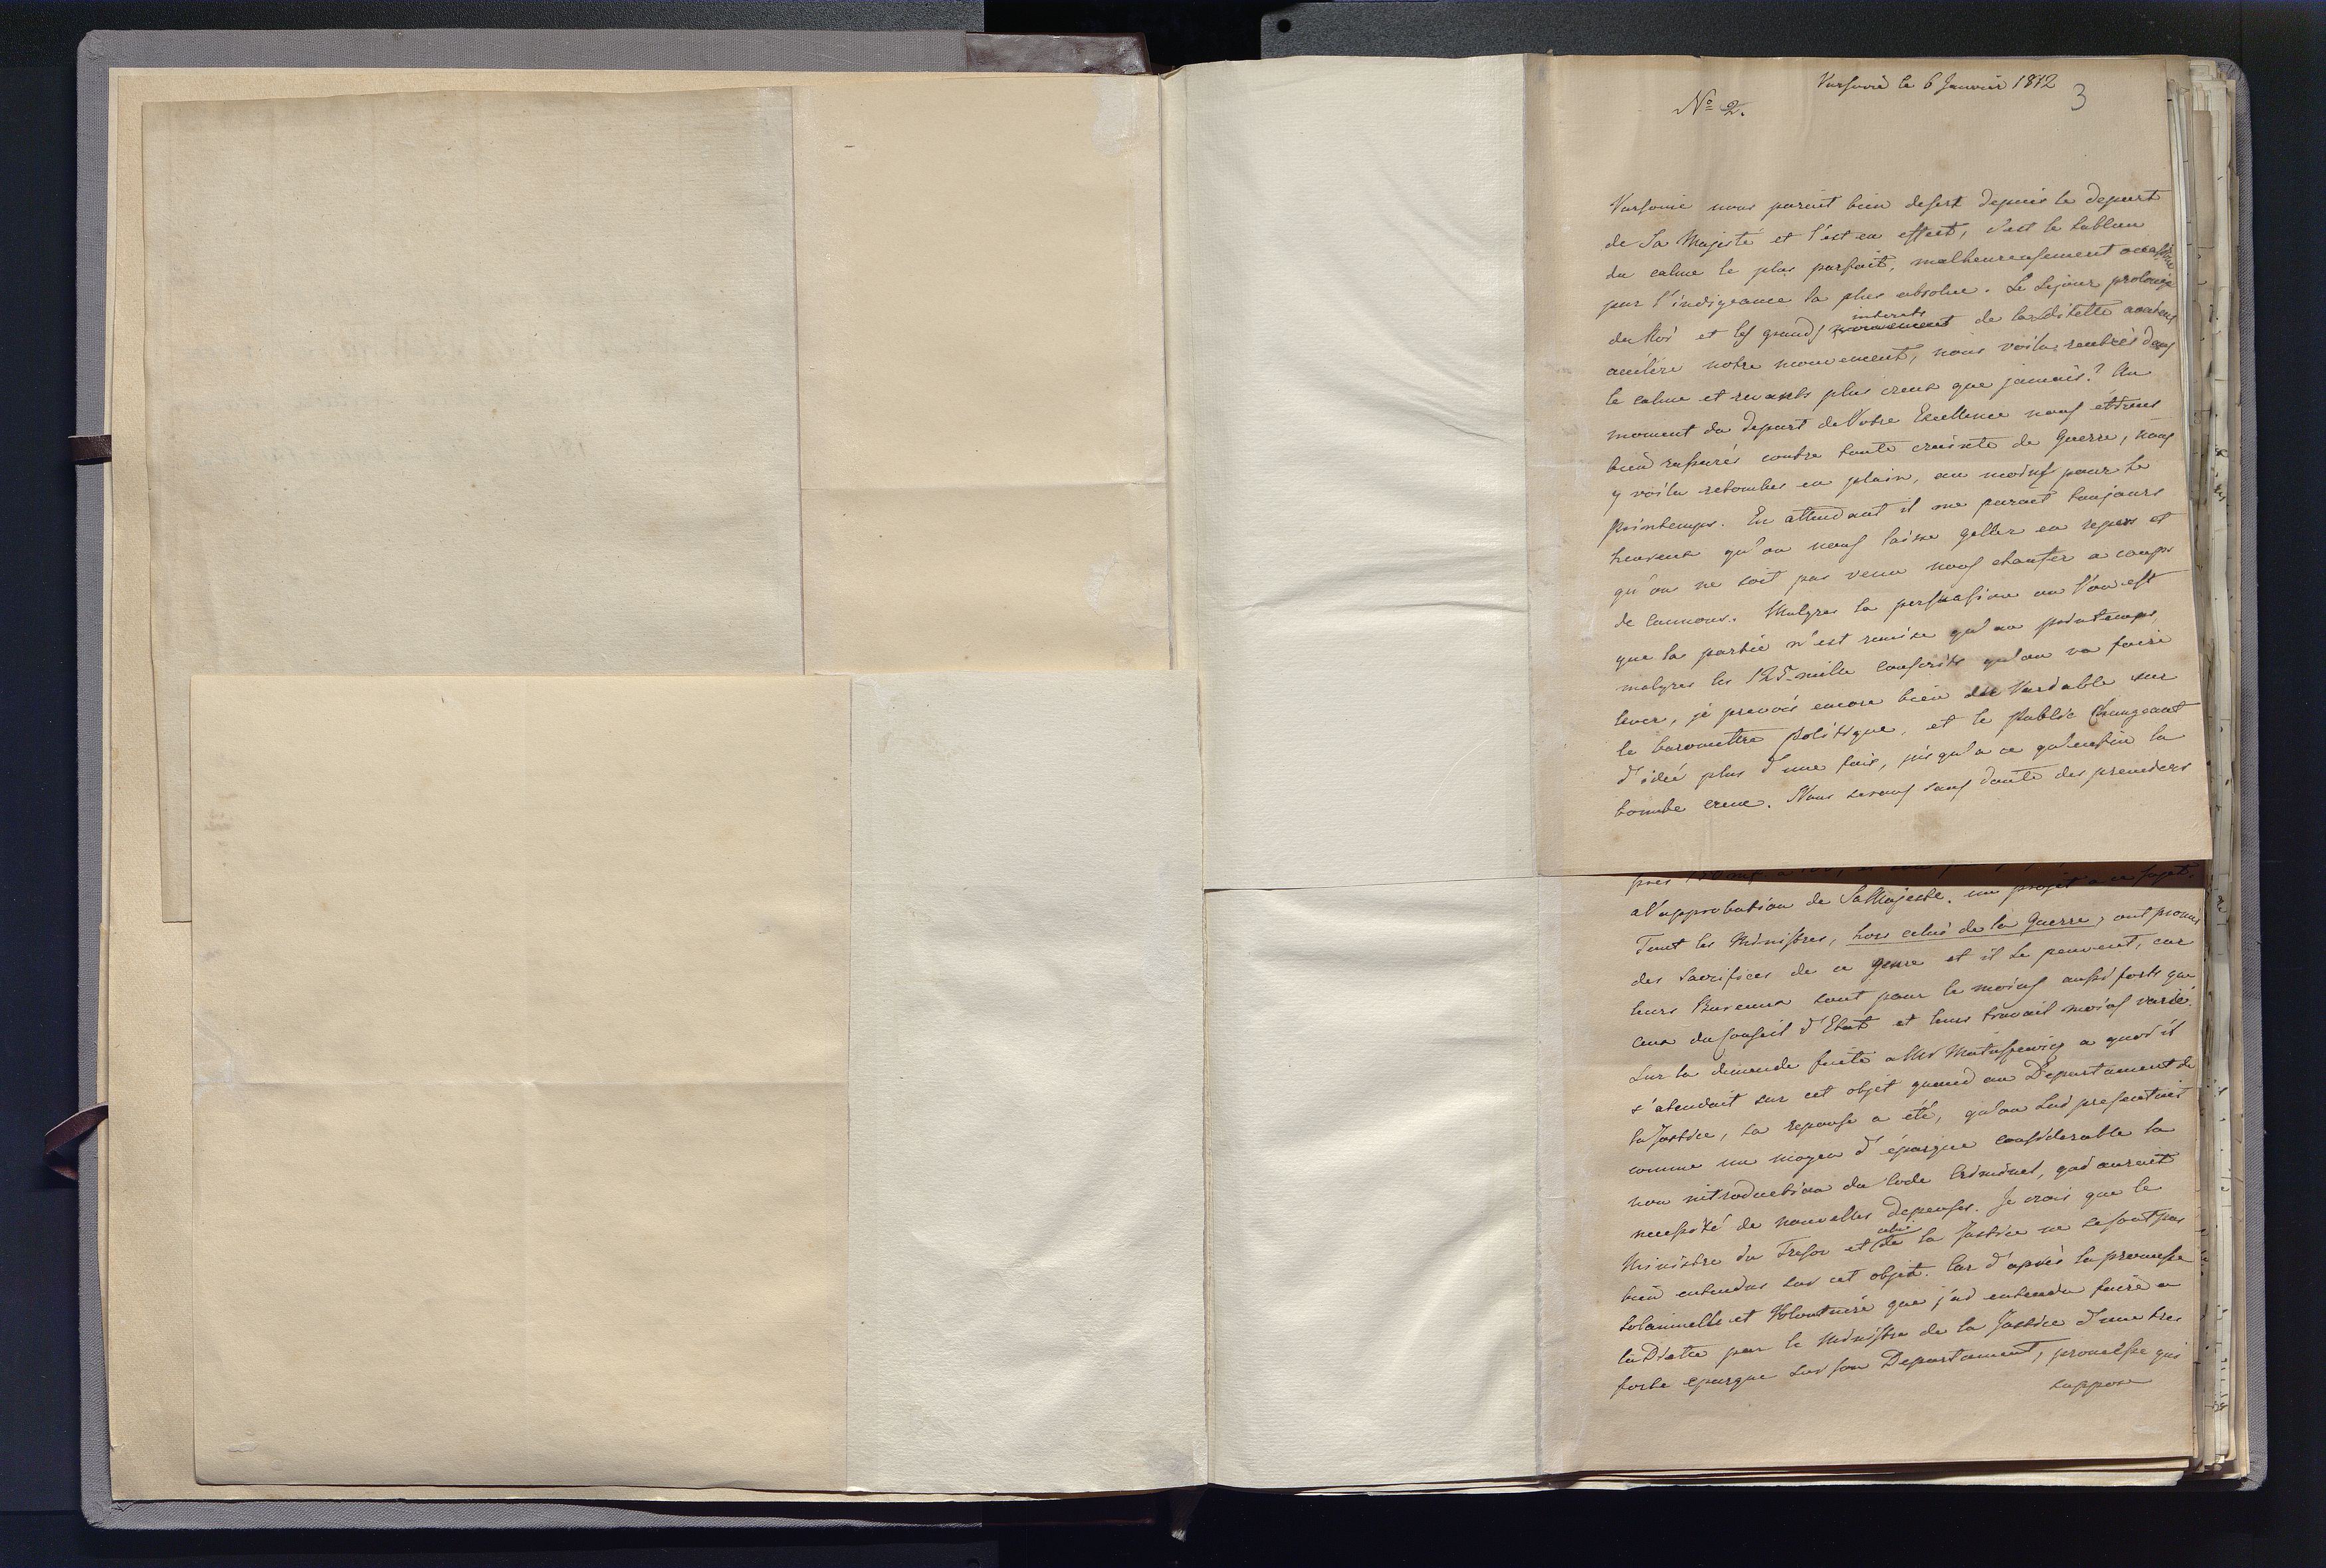 Varsovie le 6 Janvier 1812
3
No 2.
Varsovie nous parait bien desert depuis le depart
de Sa Majesté et l'est en effect, c'est le tableau
du calme le plus parfait, malheureusement occasioné
par l'indigeance la plus absolue. Le Sejour prolongé
du Roi et les grands interets de la Diette avaient
acceléré notre mouvement, nous voila rentrés dans
le calme et plus creux que jamais? Au
moment du depart de Votre Excellence nous etions
bien rassurés contre toute crainte de Guerre, nous
y voila retombes en plain, au moins pour le
Printemps. En attendant il me parait toujours
heureux qu'on nous laisse geller en repos et
qu'on ne soit pas venu nous chaufer a coups
de Cannons. Malgres la persuasion ou l'on est
que la partie n'est remise qu'au printemps,
malgres les 125 mille conscrits qu'on va faire
lever, je prevois encore bien du Variable sur
le baromettre politique, et le public changeant
d'idée plus d'une fois, jusqu'a ce qu'enfin la
bombe creve. Nous serons sans doute des premiers
a l'approbation de Sa Majesté, un projet a ce sujet.
Tout les Ministres, hors celui de la Guerre, ont promis
des Sacrifices de ce genre et il le peuvent, car
leurs Bureaux sont pour le moins aussi forts que
ceux du Conseil d'Etat et leur travail moins varié.
Sur la demande faite a Mr Matuszewicz a quoi il
s'atendait sur cet objet quand au Departament de
la Justice, sa reponse a eté, qu'on lui presentait
comme un moyen d'épargne considerable la
non introduction du Code Criminel, qui aurait
necessité de nouvelles depenses. Je crois que le
Ministre du Tresor et celui de la Justice ne se sont pas
bien entendus sur cet objet. Car d'après la promesse
solannelle et Volontaire que j'ai entendu faire a
la Diette par le Ministre de la Justice d'une tres
forte epargne sur son Departament, promesse qui
suppose